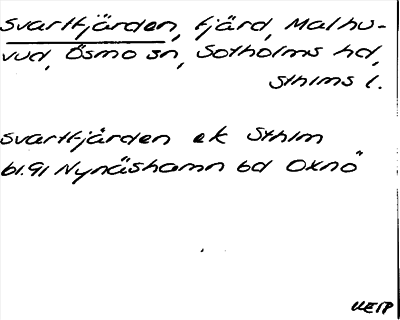 Svartfjärden, fjärd, Malhu-
vud, Ösmo sn, Sotholms hd,
Sthlms l.
Svartfjärden ek Sthlm
bl.91 Nynäshamn bd Oxnö